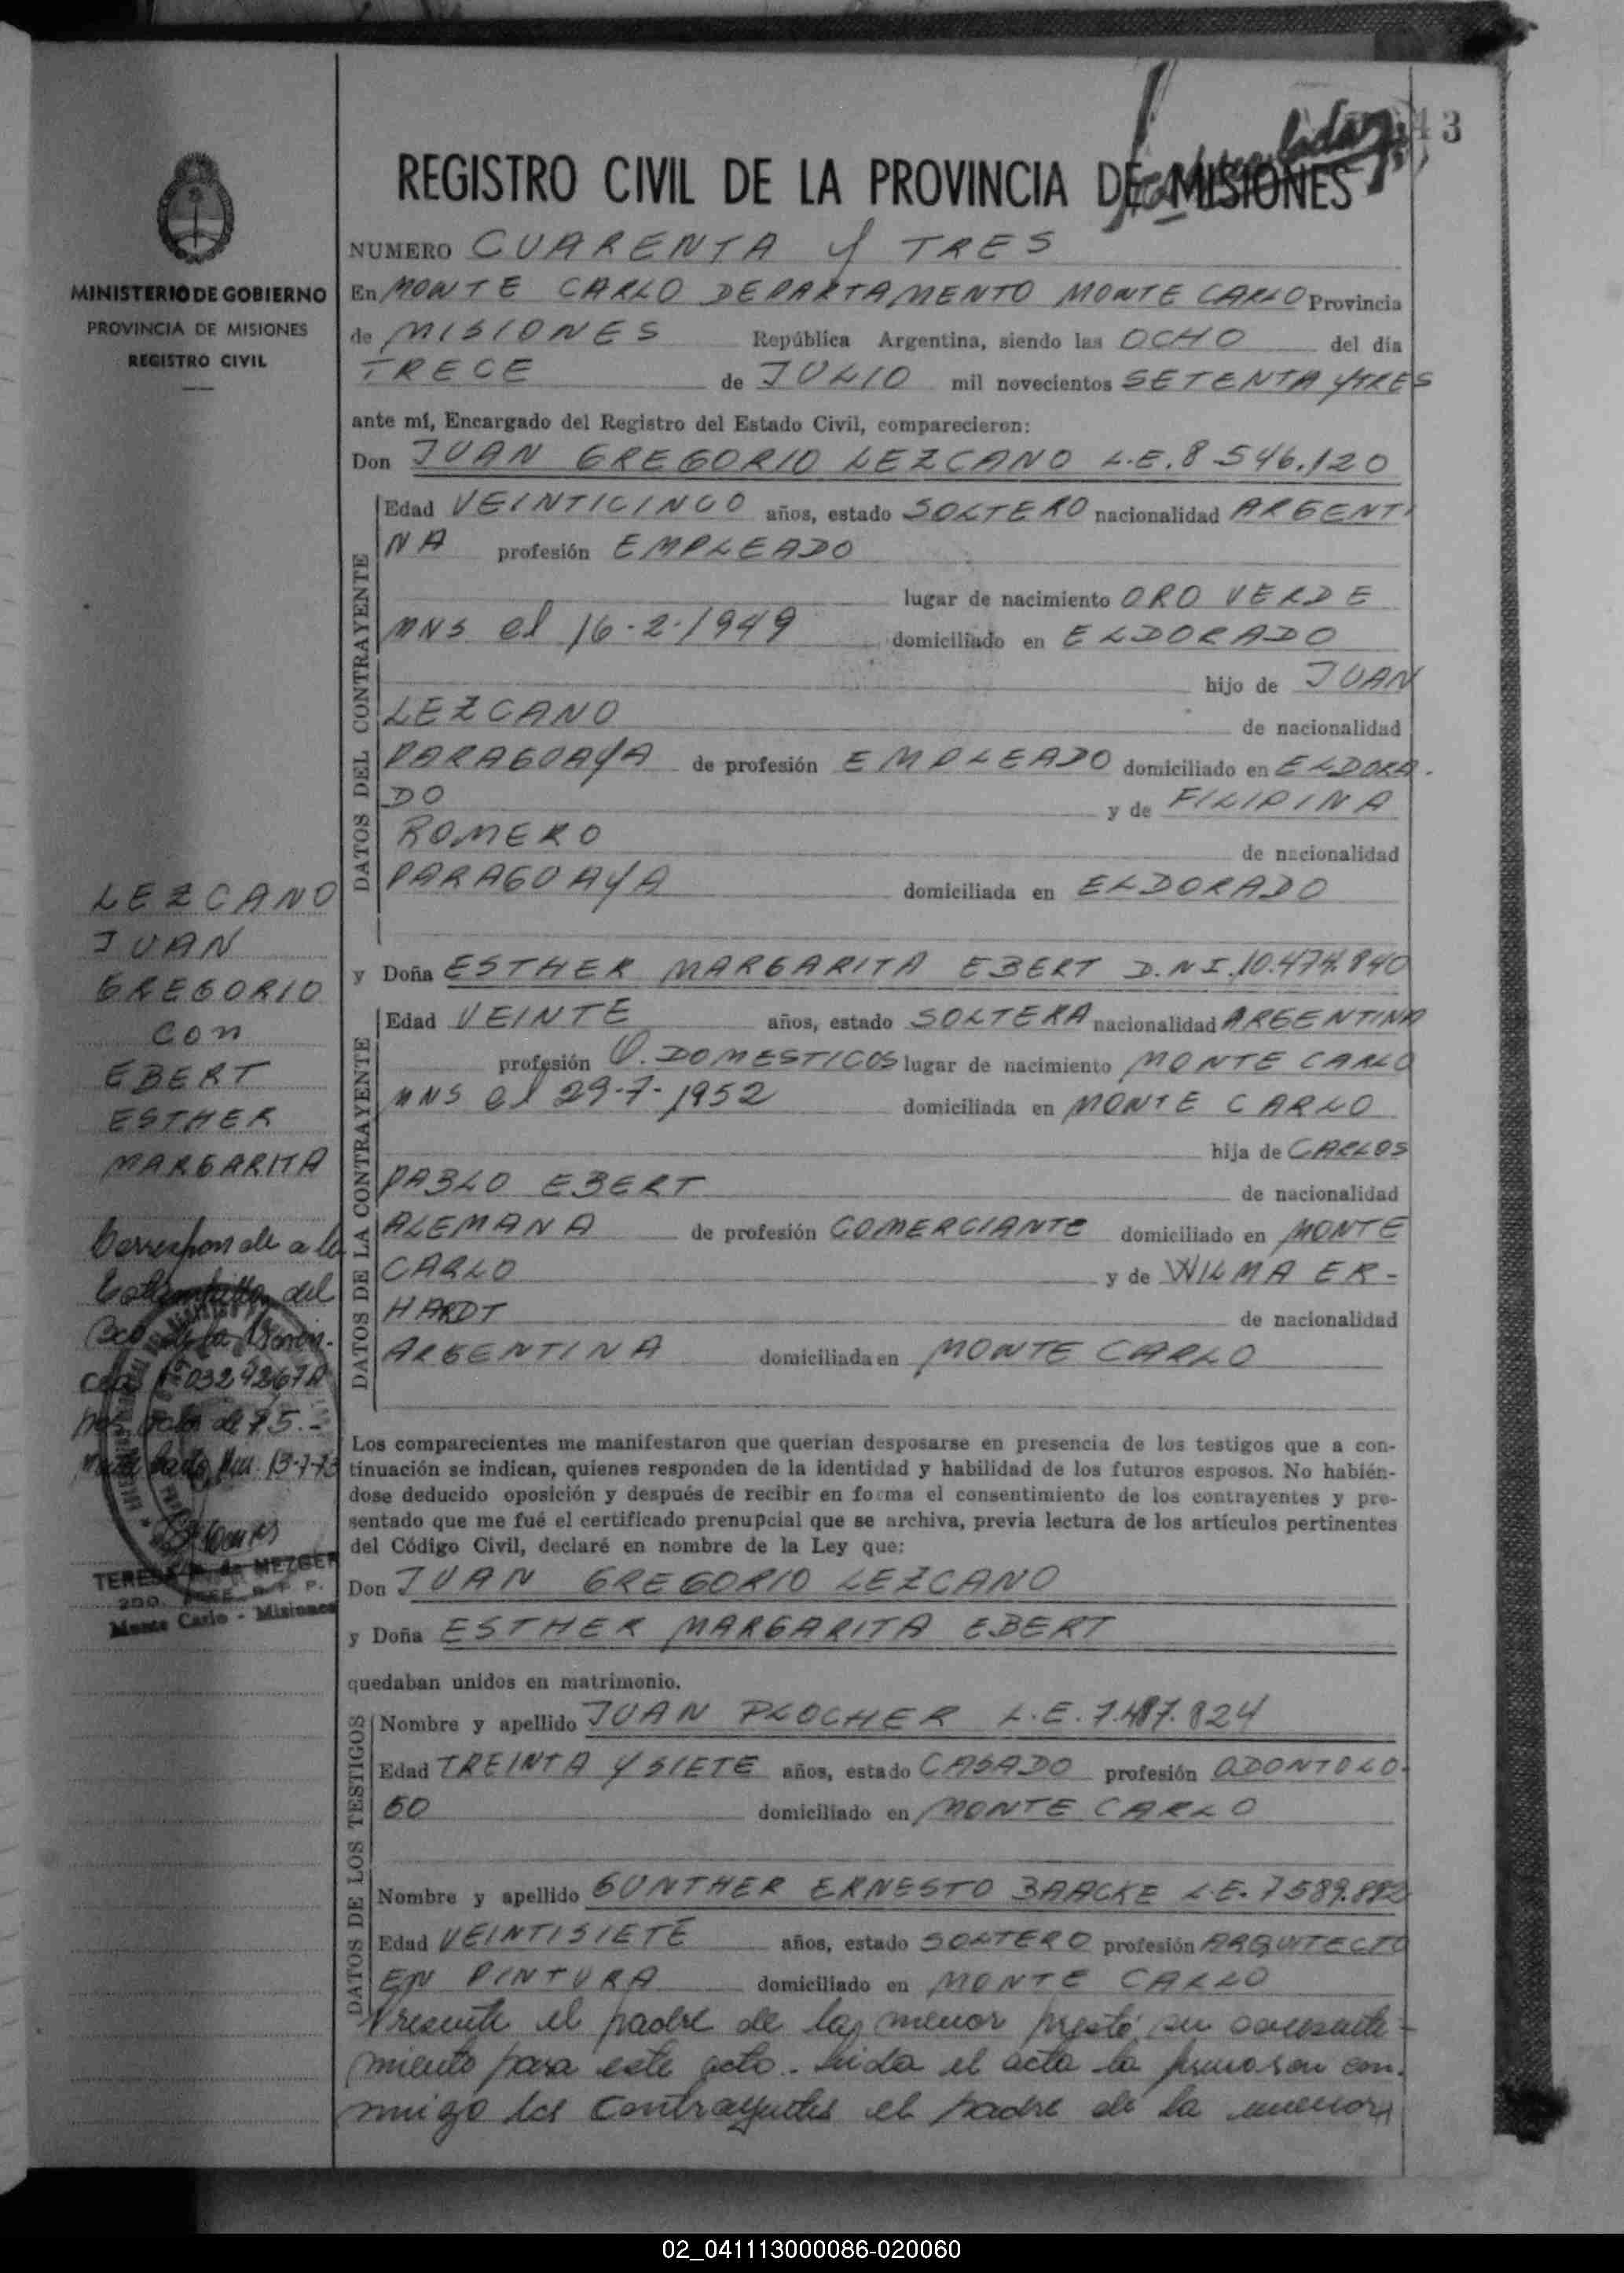 43
REGISTRO CIVIL DE LA PROVINCIA DE MISIONES
MINISTERIO DE GOBIERNO
PROVINCIA DE MISIONES
REGISTRO CIVIL
NUMERO CUARENTA Y TRES
En MONTE CARLO DEPARTAMENTO MONTE CARLO Provincia
de MISIONES República Argentina, siendo las OCHO del día
TRECE de JULIO mil novecientos SETENTA Y TRES
ante mí, Encargado del Registro del Estado Civil, comparecieron:
Don JUAN GREGORIO LEZCANO L.E. 8 546.120
DATOS DEL CONTRAYENTE
Edad VEINTICINCO años, estado SOLTERO nacionalidad ARGENTI
NA profesión EMPLEADO
lugar de nacimiento ORO VERDE
MNS el 16-2-1949 domiciliado en ELDORADO
hijo de JUAN
LEZCANO de nacionalidad
PARAGUAYA de profesión EMPLEADO domiciliado en ELDORA-
DO y de FILIPINA
ROMERO de nacionalidad
PARAGUAYA domiciliada en ELDORADO
y Doña ESTHER MARGARITA EBERT D.N.I. 10.474.840
DATOS DE LA CONTRAYENTE
Edad VEINTE años, estado SOLTERA nacionalidad ARGENTINA
profesión Q. DOMESTICOS lugar de nacimiento MONTE CARLO
MNS el 29-7-1952 domiciliada en MONTE CARLO
hija de CARLOS
PABLO EBERT de nacionalidad
ALEMANA de profesión COMERCIANTE domiciliado en MONTE
CARLO y de WILMA ER-
HARDT de nacionalidad
ARGENTINA domiciliada en MONTE CARLO
Los comparecientes me manifestaron que querían desposarse en presencia de los testigos que a con-
tinuación se indican, quienes responden de la identidad y habilidad de los futuros esposos. No habién-
dose deducido oposición y después de recibir en forma el consentimiento de los contrayentes y pre-
sentado que me fué el certificado prenupcial que se archiva, previa lectura de los artículos pertinentes
del Código Civil, declaré en nombre de la Ley que:
Don JUAN GREGORIO LEZCANO
y Doña ESTHER MARGARITA EBERT
quedaban unidos en matrimonio.
DATOS DE LOS TESTIGOS
Nombre y apellido JUAN PLOCHER L.E. 7.487.824
Edad TREINTA Y SIETE años, estado CASADO profesión ODONTOLO-
GO domiciliado en MONTE CARLO
Nombre y apellido GUNTHER ERNESTO BAACKE L.E. 7589.882
Edad VEINTISIETE años, estado SOLTERO profesión ARQUITECTO
EN PINTURA domiciliado en MONTE CARLO
Presente el padre de la menor prestó su consenti-
miento para este acto. Leida el acta la firmaron con-
migo los contrayentes el padre de la menor
LEZCANO
JUAN
GREGORIO
con
EBERT
ESTHER
MARGARITA
Corresponde a la
del
de la Provin-
cia Nº 0324267A
por valor de $5.-
13-7-73
TERESA de MEZGER
Monte Carlo - Misiones
02_041113000086-020060